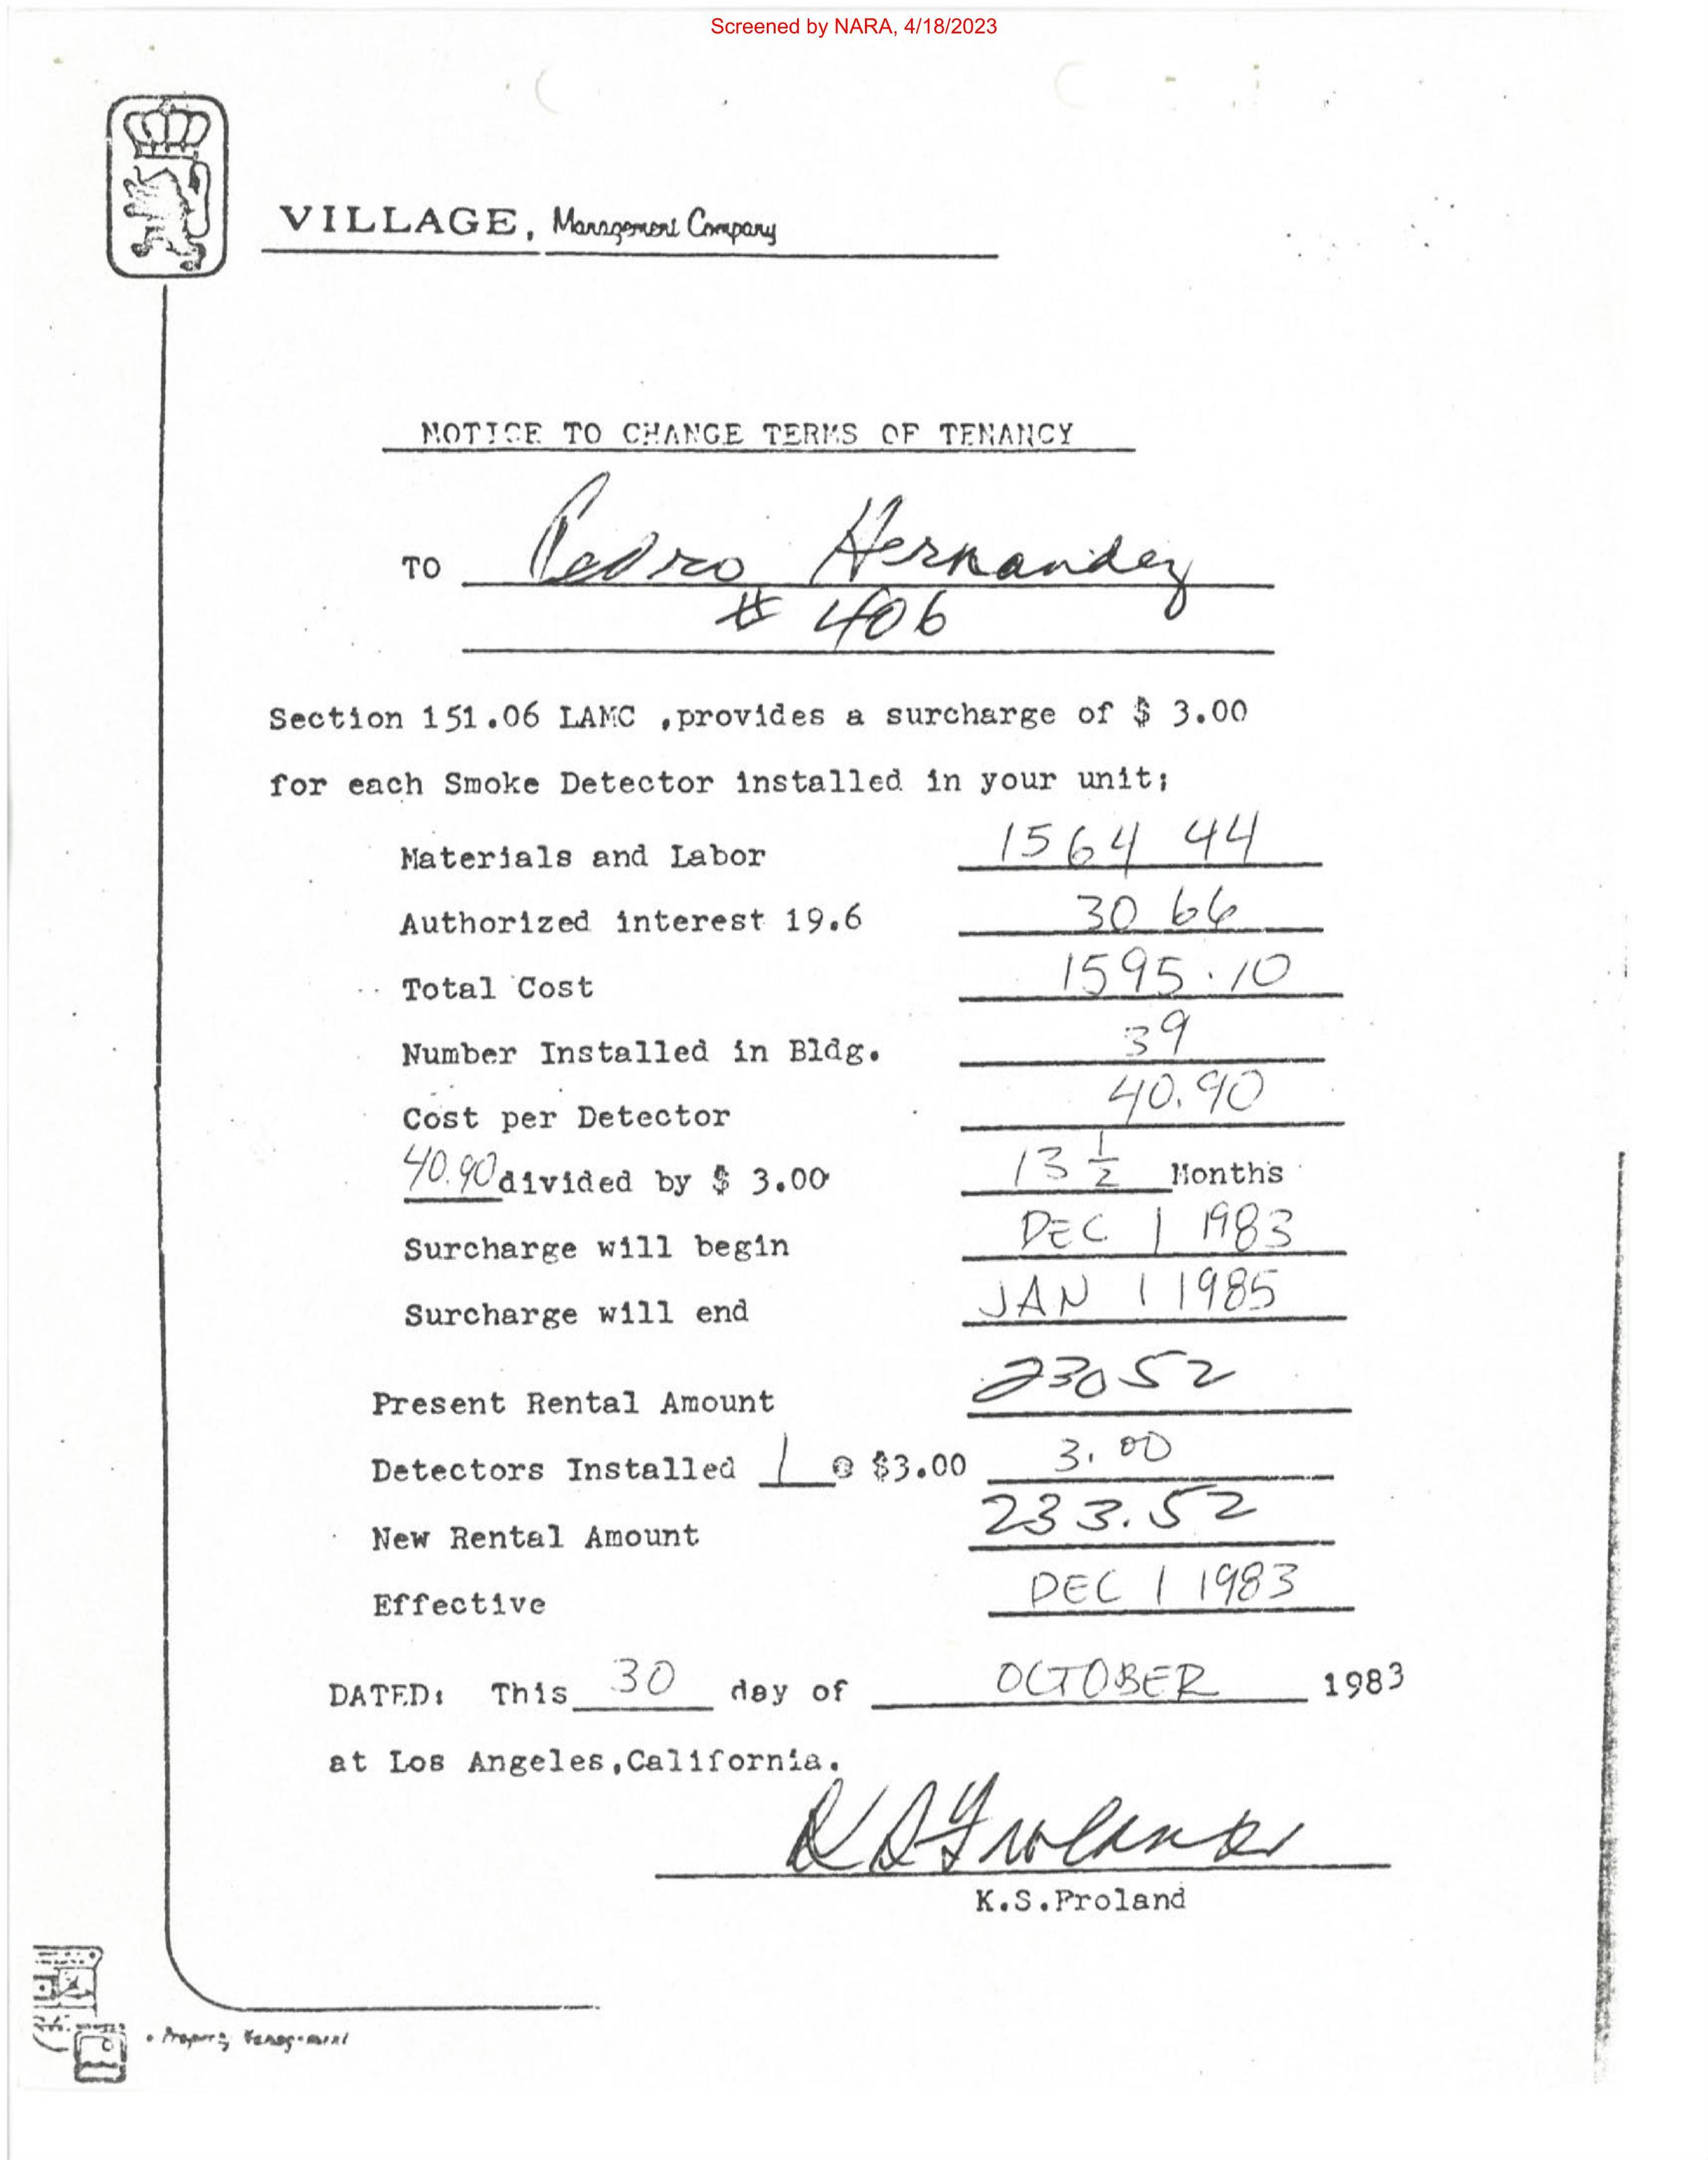 Screened by NARA, 4/18/2023
VILLAGE, Management Company
NOTICE TO CHANGE TERMS OF TENANCY
TO Pedro Hernandez
# 406
Section 151.06 LAMC ,provides a surcharge of $ 3.00
for each Smoke Detector installed in your unit;
Materials and Labor 1564 44
Authorized interest 19.6 30 66
Total Cost 1595.10
Number Installed in Bldg. 39
Cost per Detector 40.90
40.90 divided by $ 3.00 13 1/2 Months
Surcharge will begin DEC 1 1983
Surcharge will end JAN 1 1985
Present Rental Amount 230 52
Detectors Installed 1 @ $3.00 3.00
New Rental Amount 233.52
Effective DEC 1 1983
DATED: This 30 day of OCTOBER 1983
at Los Angeles,California.
K.S.Froland
Property Management